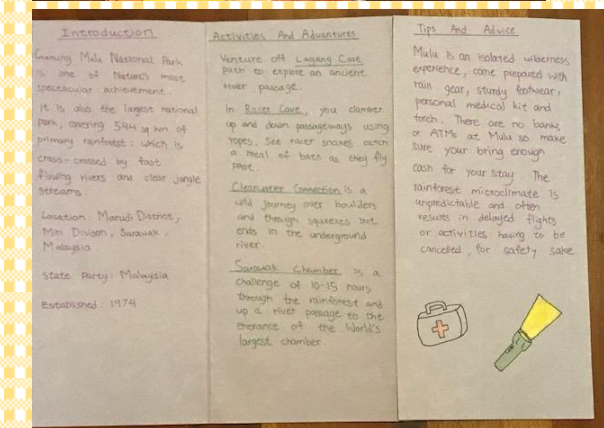 Introduction
Gunung Mulu National Park
is one of Nature's most
spectacular achievement.
It is also the largest national
park, covering 544 sq km of
primary rainforest: which is
criss-crossed by fast
flowing rivers and clear jungle
streams.
Location: Marudi District,
Miri Division, Sarawak,
Malaysia.
State Party: Malaysia
Established: 1974
Activities And Advantures
Venture off Lagang Cave
path to explore an ancient
river passage.
In Racer Cave, you clamber
up and down passageways using
ropes. See racer snakes catch
a meal of bats as they fly
past.
Clearwater Connection is a
wild journey over boulders
and through squeezes but
ends in the underground
river.
Sarawak Chamber is a
challenge of 10-15 hours
through the rainforest and
up a river passage to the
entrance of the World's
largest chamber.
Tips And Advice
Mulu is an isolated wilderness
experience, come prepared with
rain gear, sturdy footwear,
personal medical kit and
torch. There are no banks
or ATMs at Mulu so make
sure your bring enough
cash for your stay. The
rainforest microclimate is
unpredictable and often
results in delayed flights
or activities having to be
cancelled, for safety sake.